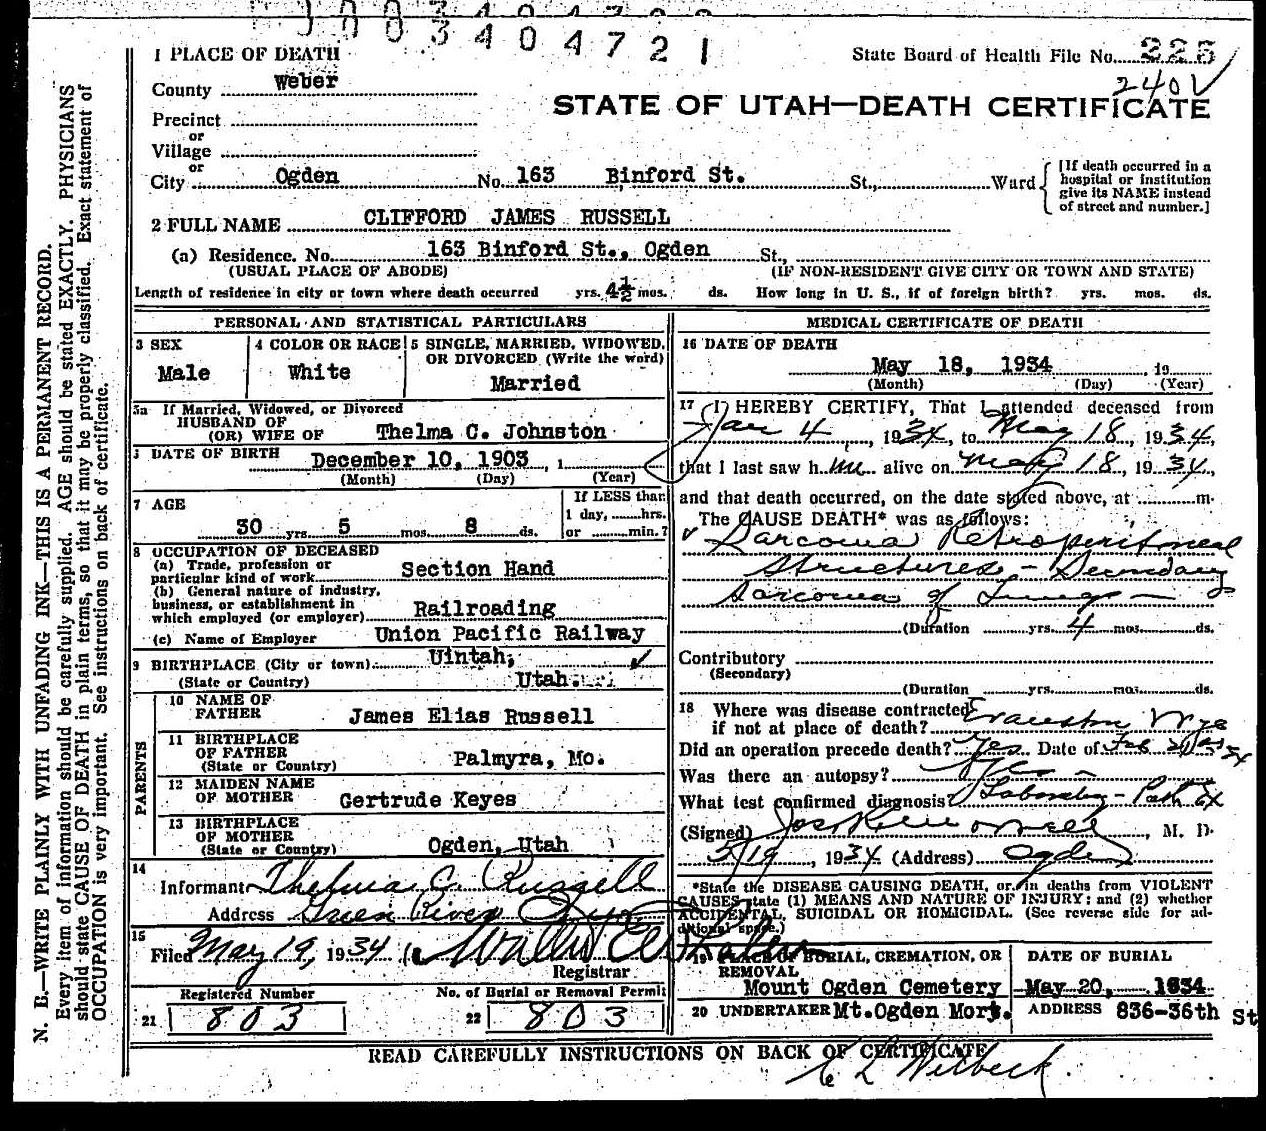 3404721
1 PLACE OF DEATH
State Board of Health File No. 225
County Weber
240 V
STATE OF UTAH—DEATH CERTIFICATE
Precinct
or
Village
or
City Ogden No. 163 Binford St. St., Ward
[If death occurred in a
hospital or institution
give its NAME instead
of street and number.]
2 FULL NAME CLIFFORD JAMES RUSSELL
(a) Residence. No. 163 Binford St., Ogden St.,
(USUAL PLACE OF ABODE) (IF NON-RESIDENT GIVE CITY OR TOWN AND STATE)
Length of residence in city or town where death occurred yrs. 4½ mos. ds. How long in U. S., if of foreign birth? yrs. mos. ds.
PERSONAL AND STATISTICAL PARTICULARS
3 SEX
Male
4 COLOR OR RACE
White
5 SINGLE, MARRIED, WIDOWED,
OR DIVORCED (Write the word)
Married
5a If Married, Widowed, or Divorced
HUSBAND OF
(OR) WIFE OF Thelma C. Johnston
DATE OF BIRTH December 10, 1903, 1
(Month) (Day) (Year)
7 AGE
30 yrs. 5 mos. 8 ds.
If LESS than
1 day, hrs.
or min.?
8 OCCUPATION OF DECEASED
(a) Trade, profession or
particular kind of work Section Hand
(b) General nature of industry,
business, or establishment in
which employed (or employer) Railroading
(c) Name of Employer Union Pacific Railway
9 BIRTHPLACE (City or town) Uintah,
(State or Country) Utah.
PARENTS
10 NAME OF
FATHER James Elias Russell
11 BIRTHPLACE
OF FATHER
(State or Country) Palmyra, Mo.
12 MAIDEN NAME
OF MOTHER Gertrude Keyes
13 BIRTHPLACE
OF MOTHER
(State or Country) Ogden, Utah
14
Informant Thelma C. Russell
Address Green River Wyo.
15
Filed May 19, 1934
Registrar
Registered Number
21 803
No. of Burial or Removal Permit
22 803
MEDICAL CERTIFICATE OF DEATH
16 DATE OF DEATH
May 18, 1934, 19
(Month) (Day) (Year)
17 I HEREBY CERTIFY, That I attended deceased from
Jan 4, 1934, to May 18, 1934,
that I last saw him alive on May 18, 1934,
and that death occurred, on the date stated above, at m.
The CAUSE DEATH* was as follows:
Sarcoma Retroperitoneal
structures - Secondary
sarcoma of Lungs -
(Duration yrs. 4 mos. ds.
Contributory
(Secondary)
(Duration yrs. mos. ds.
18 Where was disease contracted
if not at place of death? Evanston Wyo
Did an operation precede death? Yes Date of Feb 34
Was there an autopsy? Yes -
What test confirmed diagnosis? Laboratory - Path Ex
(Signed) , M. D.
5/19, 1934 (Address) Ogden
*State the DISEASE CAUSING DEATH, or in deaths from VIOLENT
CAUSES state (1) MEANS AND NATURE OF INJURY: and (2) whether
ACCIDENTAL, SUICIDAL OR HOMICIDAL. (See reverse side for ad-
ditional space.)
19 PLACE OF BURIAL, CREMATION, OR
REMOVAL
Mount Ogden Cemetery
DATE OF BURIAL
May 20, 1934
20 UNDERTAKER Mt.Ogden Mort.
ADDRESS 836-36th St
READ CAREFULLY INSTRUCTIONS ON BACK OF CERTIFICATE
N. B.—WRITE PLAINLY WITH UNFADING INK—THIS IS A PERMANENT RECORD.
Every item of information should be carefully supplied. AGE should be stated EXACTLY. PHYSICIANS
should state CAUSE OF DEATH in plain terms, so that it may be properly classified. Exact statement of
OCCUPATION is very important. See instructions on back of certificate.